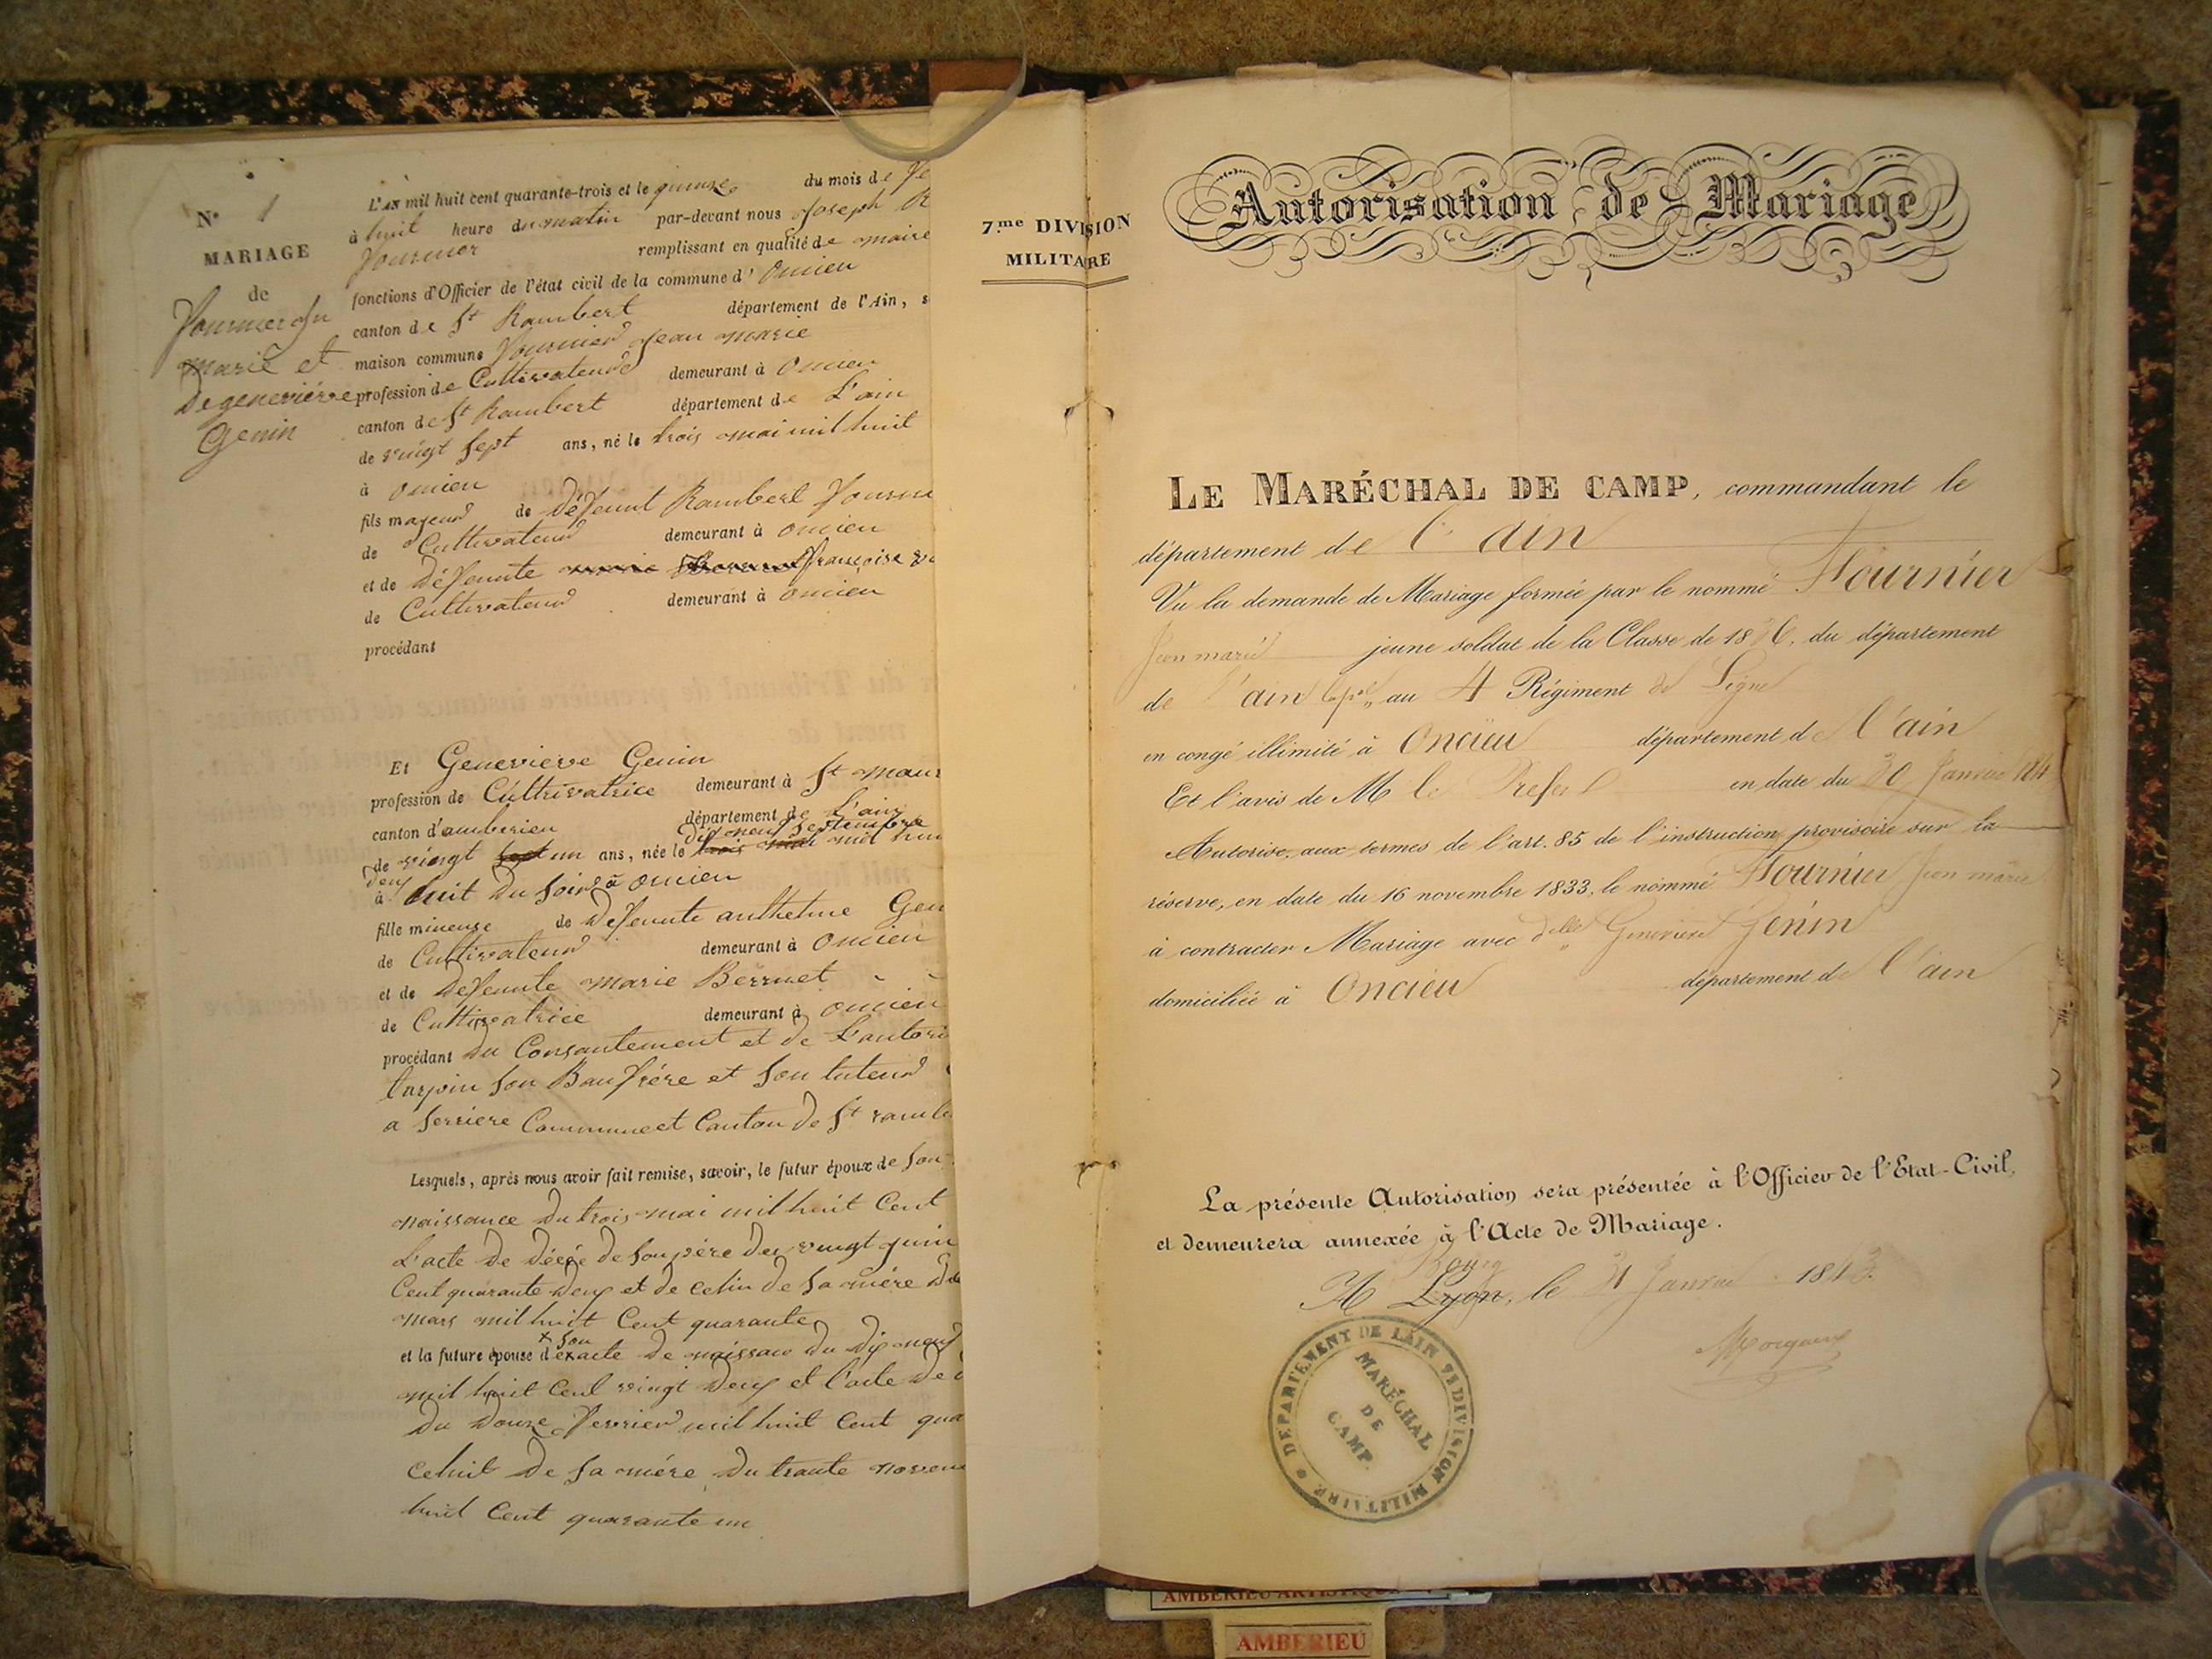 N.º 1
MARIAGE
de
Fournier Jn
marie et
De genevièrve
Genin
L'AN mil huit cent quarante-trois et le quinze du mois de fe
à huit heure du matin par-devant nous Joseph R
fournier remplissant en qualité de maire
fonctions d'Officier de l'état civil de la commune d' Oncieu
canton de St Rambert département de l'Ain, s
maison commune fournier Jean marie
profession de Cultivateur demeurant à Oncieu
canton de St Rambert département de L'ain
de vingt sept ans, né le trois mai mil huit
à oncieu
fils majeur de deffunt Rambert fourni
de Cultivateur demeurant à oncieu
et de deffunte françoise
de Cultivateur demeurant à oncieu
procédant
Et Genevieve Genin
profession de Cultrivatrice demeurant à St maur
canton d'amberieu département de L'ain
dix neuf Septembre
de vingt un ans, née le mil hui
deux
à huit du soir à oncieu
fille mineuse de deffunte anthelme Gen
de Cultivateur demeurant à Oncieu
et de deffunte marie Berruet
de Cultivatrice demeurant à oncieu
procédant du Consantement et de L'autori
son Baufrére et son tuteur
a serriere Commune et Canton de St ramb
Lesquels, après nous avoir fait remise, savoir, le futur époux de son
naissance du trois mai mil huit Cent
L'acte de décée de son père du vingt juin
Cent quarante deux et de celui de sa mére
mars mil huit Cent quarante
+ son
et la future épouse d'exacte de naissance du dix neuf
mil huit Cent vingt deux et l'acte de
du douze fevrier mil huit Cent qua
Celuit de sa mére du trante novem
huit Cent quarante un
7.me DIVISION
MILITAIRE
Autorisation de Mariage
LE MARÉCHAL DE CAMP, commandant le
département de l'ain
Vu la demande de Mariage formée par le nommé Fournier
Jean marie jeune soldat de la Classe de 1836, du département
de l'ain au 4 Régiment de Ligne
en congé illimité à Oncieu département de l'ain
Et l'avis de M le Prefet en date du 30 Janvier 184
Autorise, aux termes de l'art. 85 de l'instruction provisoire sur la
réserve, en date du 16 novembre 1833, le nommé Fournier Jean marie
à contracter Mariage avec dlle Genevieve Genin
domiciliée à Oncieu département de l'ain
La présente Autorisation sera présentée à l'Officier de l'Etat-Civil,
et demeurera annexée à l'Acte de Mariage.
Bourg
A Lyon, le 31 Janvier 1843.
DEPARTEMENT DE L'AIN 7E DIVISION MILITAIRE
MARÉCHAL
DE
CAMP.
AMBERIEU ARTISTIQU
AMBERIEU